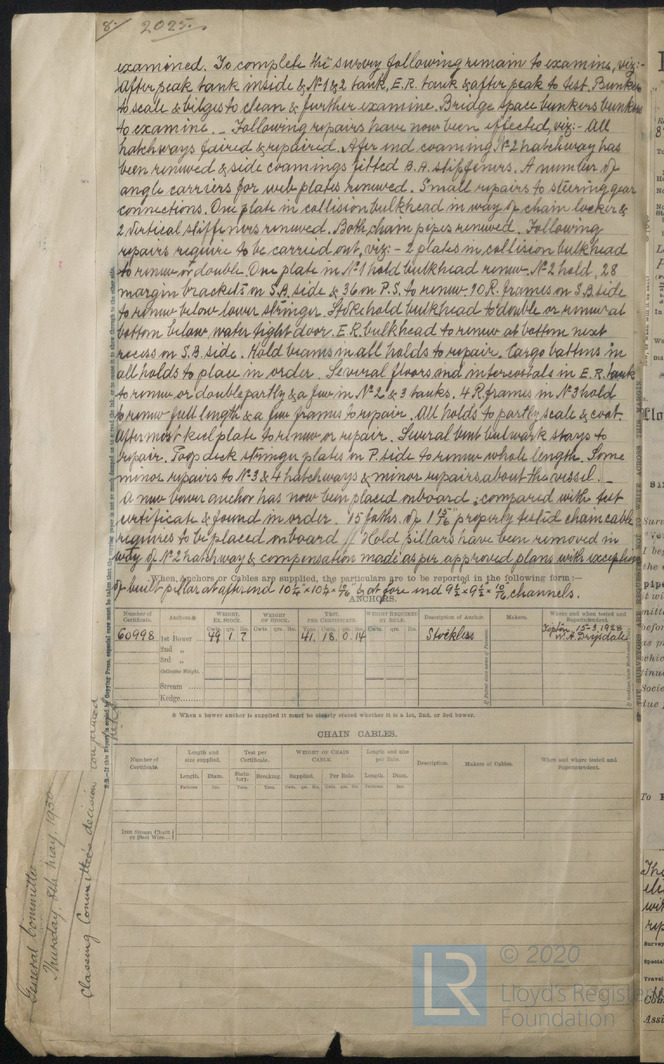 8/ 2025.
examined. To complete the survey following remain to examine, viz:-
After peak tank inside & No 1 & 2 tank, E.R. tank & after peak to test. Bunkers
to scale & bilges to clean & further examine. Bridge space bunkers
to examine. _ Following repairs have now been effected, viz:- All
hatchways faired & repaired. After end coaming No 2 hatchway has
been renewed & side coamings fitted B.A. stiffeners. A number of
angle carriers for web plates renewed. Small repairs to steering gear
connections. One plate in collision bulkhead in way of chain locker &
2 vertical stiffeners renewed. Both chain pipes renewed. Following
repairs require to be carried out, viz:- 2 plates in collision bulkhead
to renew or double. One plate in No 1 hold bulkhead renew. No 2 hold, 28
margin brackets on S.B. side & 36 on P.S. to renew. 10 R. frames on S.B. side
to renew below lower stringer. Stokehold bulkhead to double or renew at
bottom below water tight door. E.R. bulkhead to renew at bottom next
recess on S.B. side. Hold beams in all holds to repair. Cargo battens in
all holds to place in order. Several floors and intercostals in E.R. tank
to renew or double partly & a few in No 2 & 3 tanks. 4 R. frames in No 3 hold
to renew full length & a few frames to repair. All holds to partly scale & coat.
Aftermost keel plate to renew or repair. Several bent bulwark stays to
repair. Poop deck stringer plates on P. side to renew whole length. Some
minor repairs to No 3 & 4 hatchways & minor repairs about the vessel. _
A new bower anchor has now been placed onboard, compared with test
certificate & found in order. 15 faths. of 1 15/16 properly tested chain cable
requires to be placed onboard // Hold pillars have been removed in
way of No 2 hatchway & compensation made as per approved plans with exception
of built pillar at after end 10½ × 10½ × & at fore end 9½ × 9½ × channels.
When, Anchors or Cables are supplied, the particulars are to be reported in the following form :—
ANCHORS.
Number of Certificate. Anchors. WEIGHT, EX. STOCK. WEIGHT OF STOCK. TEST, PER CERTIFICATE. WEIGHT REQUIRED BY RULE. Description of Anchor. Makers. Where and when tested and Superintendent.
60998 1st Bower 44 1 7 41 18 0 14 Stockless 15-3-1928
2nd „
3rd „
Collective Weight.
Stream
Kedge
※ When a bower anchor is supplied it must be clearly stated whether it is a 1st, 2nd, or 3rd bower.
CHAIN CABLES.
Number of Certificate. Length and size supplied. Test per Certificate. WEIGHT OF CHAIN CABLE Length and size per Rule. Description. Makers of Cables. Where and when tested and Superintendent.
Length. Diam. Statutory. Breaking. Supplied. Per Rule. Length. Diam.
Iron Stream Chain or Steel Wire
General Committee
Thursday, 8th May, 1930
Classing Committee's decision confirmed
LR
© 2020
Lloyd's Register
Foundation